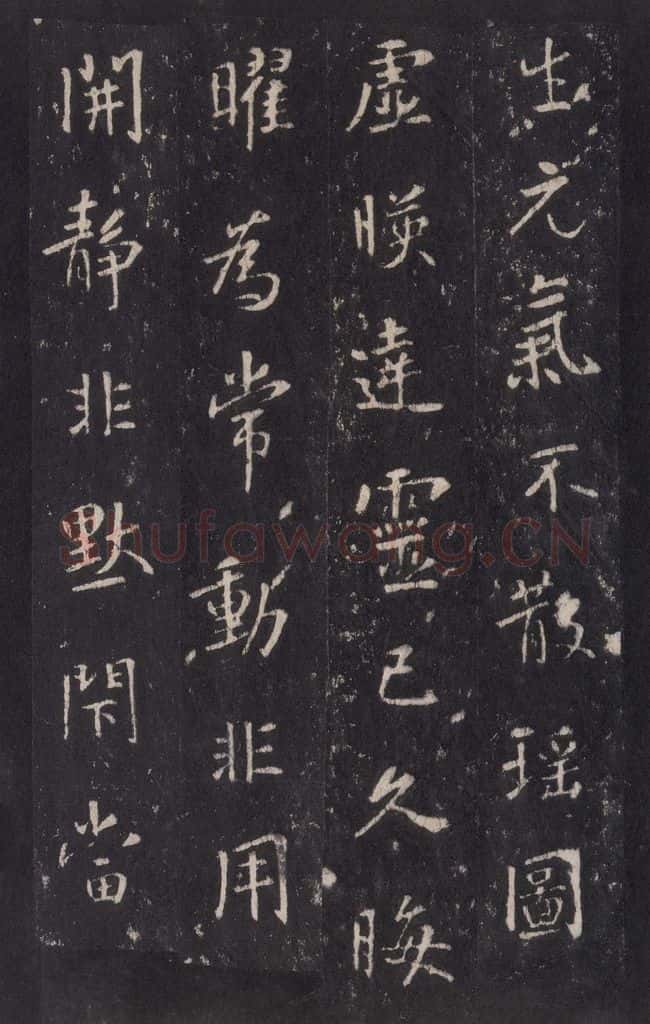 生元氣不散瑶圖
虛暎達靈已久晦
曜為常動非用
開靜非默閇當
Shufawang.CN